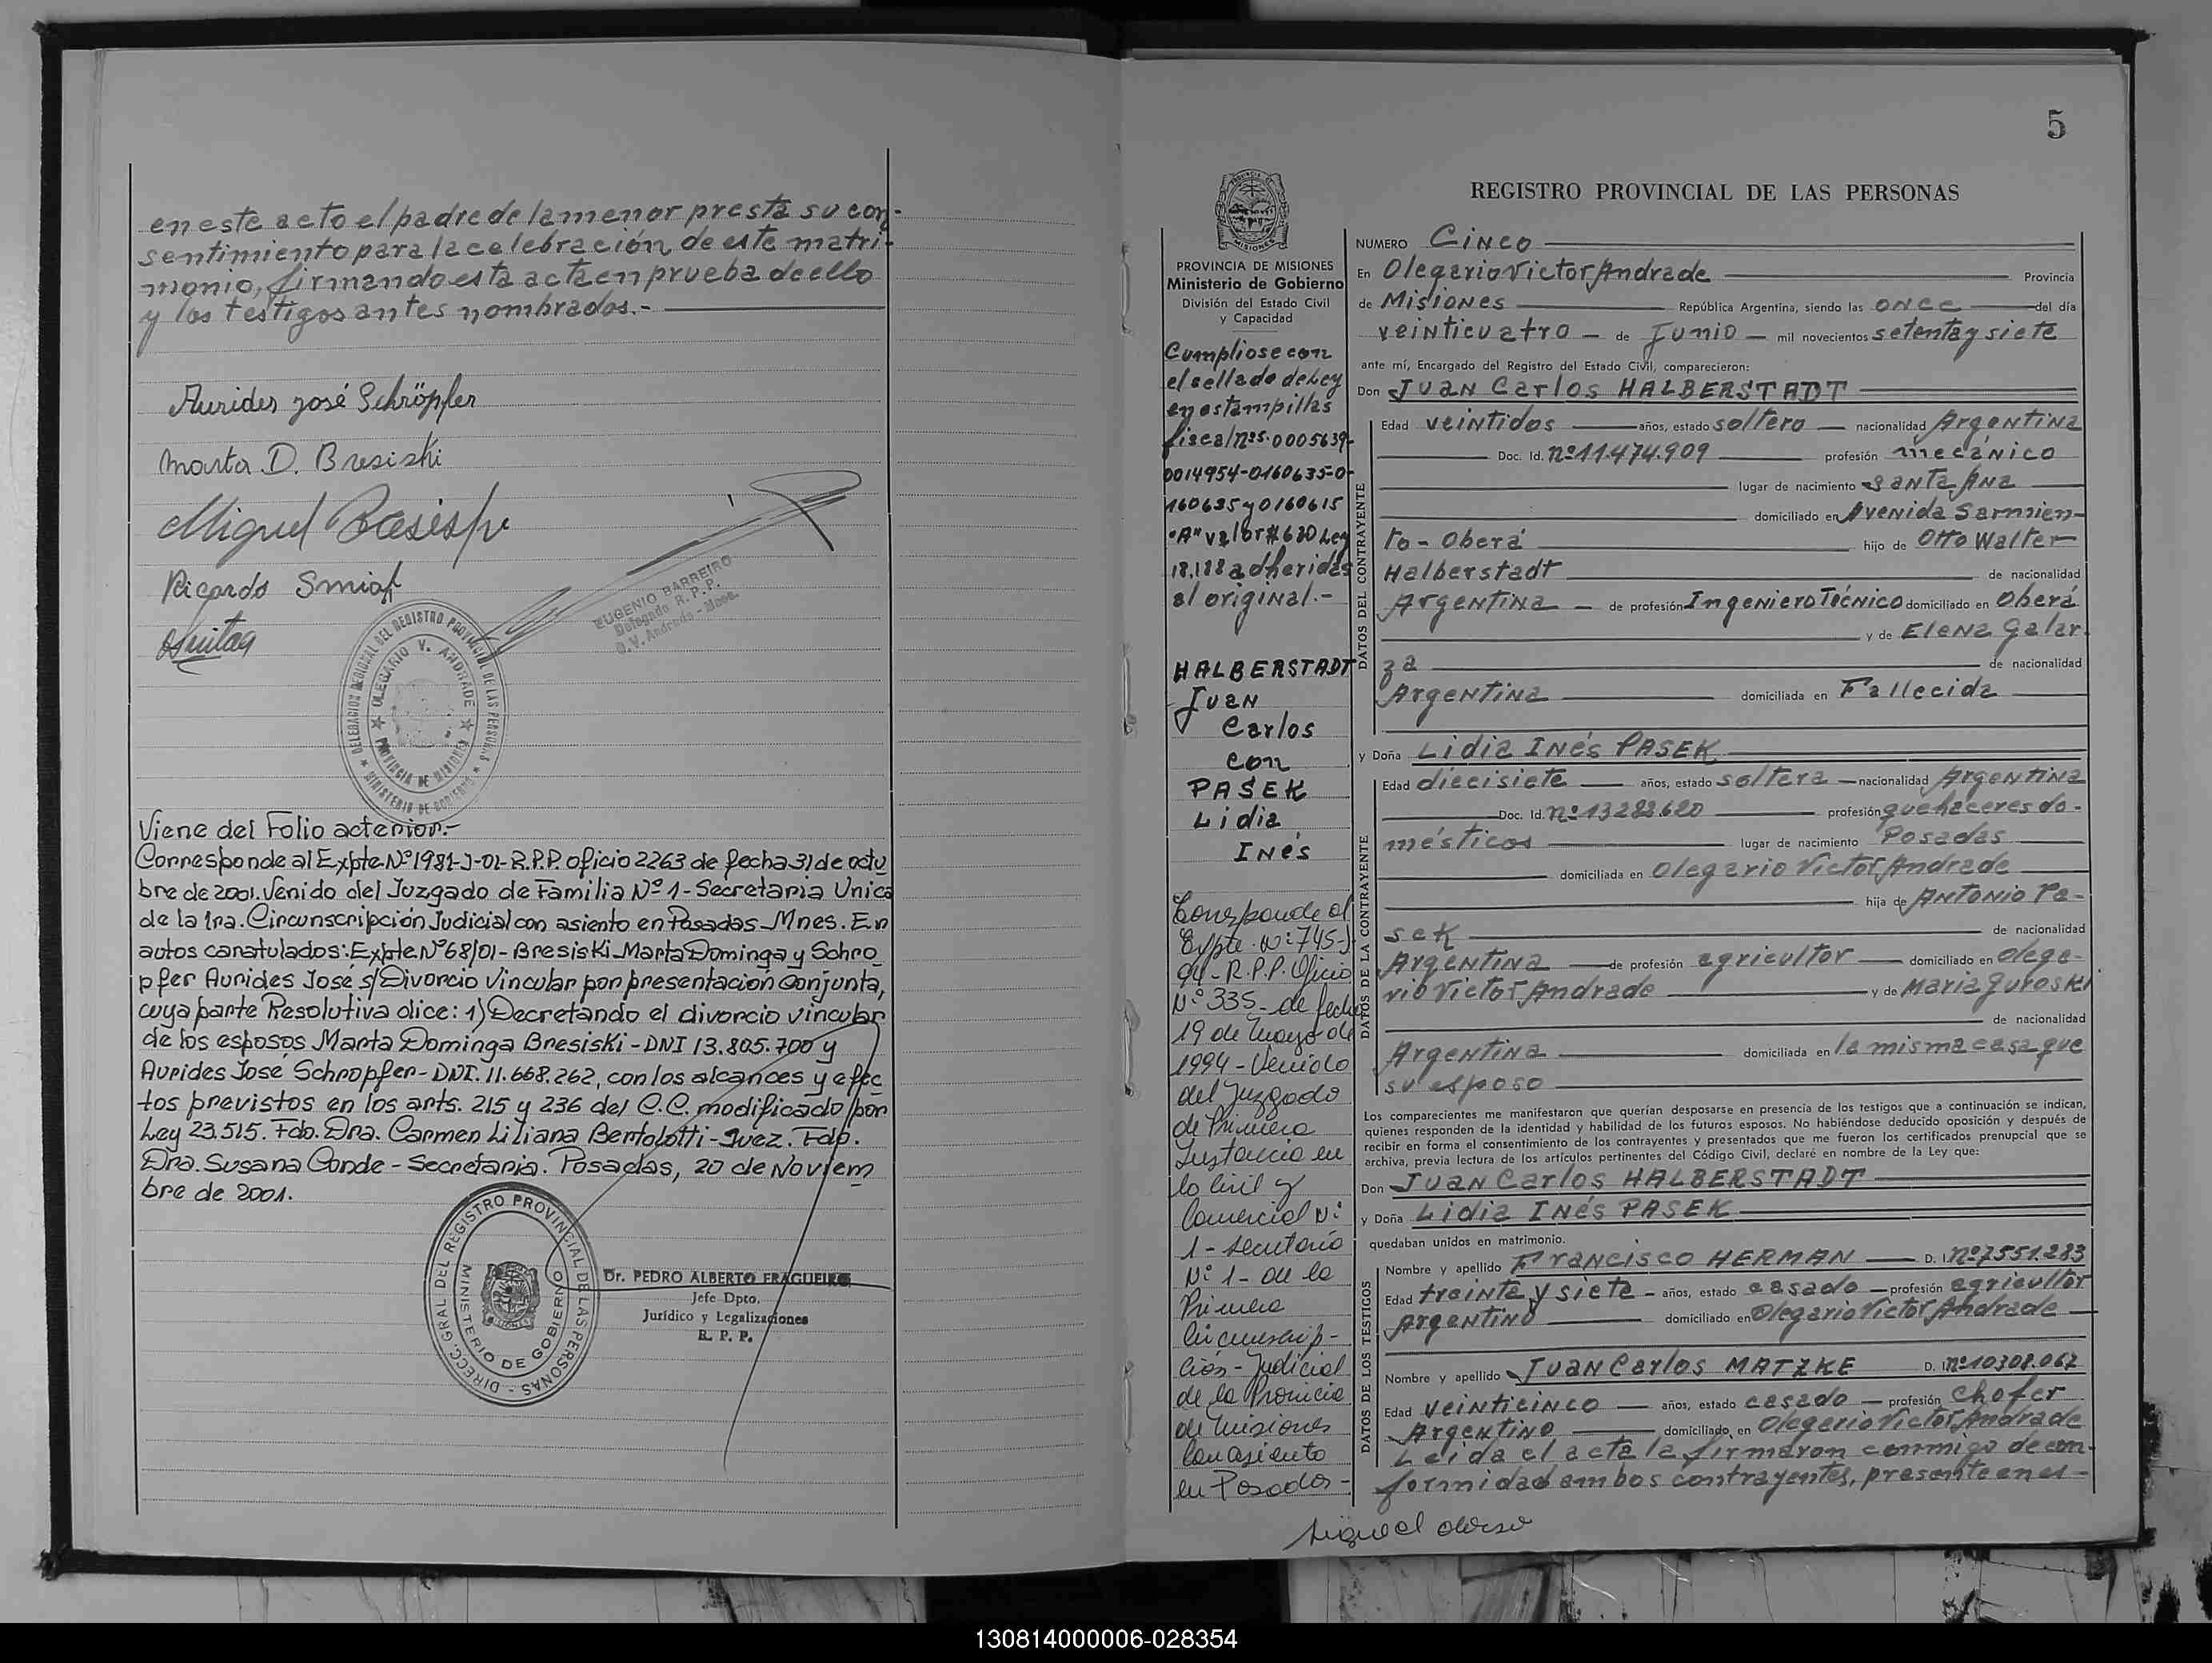 en este acto el padre de la menor presta su con-
sentimiento para la celebración de este matri-
monio, firmando esta acta en prueba de ello
y los testigos antes nombrados.-
Aurides José Schröpfer
Marta D. Bresiski
Miguel Bresiski
Ricardo Smiak
EUGENIO BARREIRO
Delegado R. P. P.
O. V. Andrade - Mnes.
DELEGACION REGIONAL DEL REGISTRO PROVINCIAL DE LAS PERSONAS
MINISTERIO DE GOBIERNO
OLEGARIO V. ANDRADE
PROVINCIA DE MISIONES
Viene del Folio acterior.-
Corresponde al Expte Nº 1981-J-01-R.P.P. oficio 2263 de fecha 31 de octu
bre de 2001. Venido del Juzgado de Familia Nº 1 - Secretaria Unica
de la 1ra. Circunscripción Judicial con asiento en Posadas - Mnes. En
autos caratulados: Expte. Nº 68/01 - Bresiski Marta Dominga y Schro
pfer Aurides José s/Divorcio Vincular por presentación Conjunta,
cuya parte Resolutiva dice: 1) Decretando el divorcio vincular
de los esposos Marta Dominga Bresiski - DNI 13.805.700 y
Aurides José Schropfer - DNI. 11.668.262, con los alcances y efec
tos previstos en los arts. 215 y 236 del C.C. modificado por
Ley 23.515. Fdo. Dra. Carmen Liliana Bertolotti - Juez. Fdo.
Dra. Susana Conde - Secretaria. Posadas, 20 de Noviem
bre de 2001.
DIRECC. GRAL DEL REGISTRO PROVINCIAL DE LAS PERSONAS
MINISTERIO DE GOBIERNO
Dr. PEDRO ALBERTO FRAGUEIRO
Jefe Dpto.
Jurídico y Legalizaciones
R. P. P.
5
PROVINCIA DE MISIONES
Ministerio de Gobierno
División del Estado Civil
y Capacidad
Cumpliose con
el sellado de Ley
en estampillas
fiscal nºs. 0005639-
0014954-0160635-0-
160625 y 0160615
"A" valor $ 620 Ley
18.188 adheridas
al original.-
HALBERSTADT
Juan
Carlos
con
PASEK
Lidia
Inés
Corresponde al
Expte. Nº: 745-J-
94 - R.P.P. Oficio
Nº 335 - de fecha
19 de Mayo de
1994 - Venido
del Juzgado
de Primera
Instancia en
lo Civil y
Comercial Nº
1 - Secretaria
Nº 1 - de la
Primera
Circunscrip-
ción - Judicial
de la Provincia
de Misiones
con asiento
en Posadas -
REGISTRO PROVINCIAL DE LAS PERSONAS
NUMERO Cinco
En Olegario Victor Andrade Provincia
de Misiones República Argentina, siendo las once del día
veinticuatro de Junio mil novecientos setenta y siete
ante mí, Encargado del Registro del Estado Civil, comparecieron:
Don Juan Carlos HALBERSTADT
DATOS DEL CONTRAYENTE
Edad veintidos años, estado soltero nacionalidad Argentina
Doc. Id. nº 11.474.909 profesión mecánico
lugar de nacimiento Santa Ana
domiciliado en Avenida Sarmien-
to - Oberá hijo de Otto Walter
Halberstadt de nacionalidad
Argentina de profesión Ingeniero Técnico domiciliado en Oberá
y de Elena Galar-
za de nacionalidad
Argentina domiciliada en Fallecida
y Doña Lidia Inés PASEK
DATOS DE LA CONTRAYENTE
Edad diecisiete años, estado soltera nacionalidad Argentina
Doc. Id. nº 13.282.620 profesión quehaceres do-
mésticos lugar de nacimiento Posadas
domiciliada en Olegario Victor Andrade
hija de Antonio Pa-
sek de nacionalidad
Argentina de profesión agricultor domiciliado en Olega-
rio Victor Andrade y de Maria Juroski
de nacionalidad
Argentina domiciliada en la misma casa que
su esposo
Los comparecientes me manifestaron que querían desposarse en presencia de los testigos que a continuación se indican,
quienes responden de la identidad y habilidad de los futuros esposos. No habiéndose deducido oposición y después de
recibir en forma el consentimiento de los contrayentes y presentados que me fueron los certificados prenupcial que se
archiva, previa lectura de los artículos pertinentes del Código Civil, declaré en nombre de la Ley que:
Don Juan Carlos HALBERSTADT
y Doña Lidia Inés PASEK
quedaban unidos en matrimonio.
DATOS DE LOS TESTIGOS
Nombre y apellido Francisco HERMAN D. I. nº 7551.283
Edad treinta y siete años, estado casado profesión agricultor
Argentino domiciliado en Olegario Victor Andrade
Nombre y apellido Juan Carlos MATZKE D. I. nº 10308.067
Edad veinticinco años, estado casado profesión chofer
Argentino domiciliado en Olegario Victor Andrade
Leida el acta la firmaron conmigo de con-
formidad ambos contrayentes, presente en es-
sigue al dorso
130814000006-028354